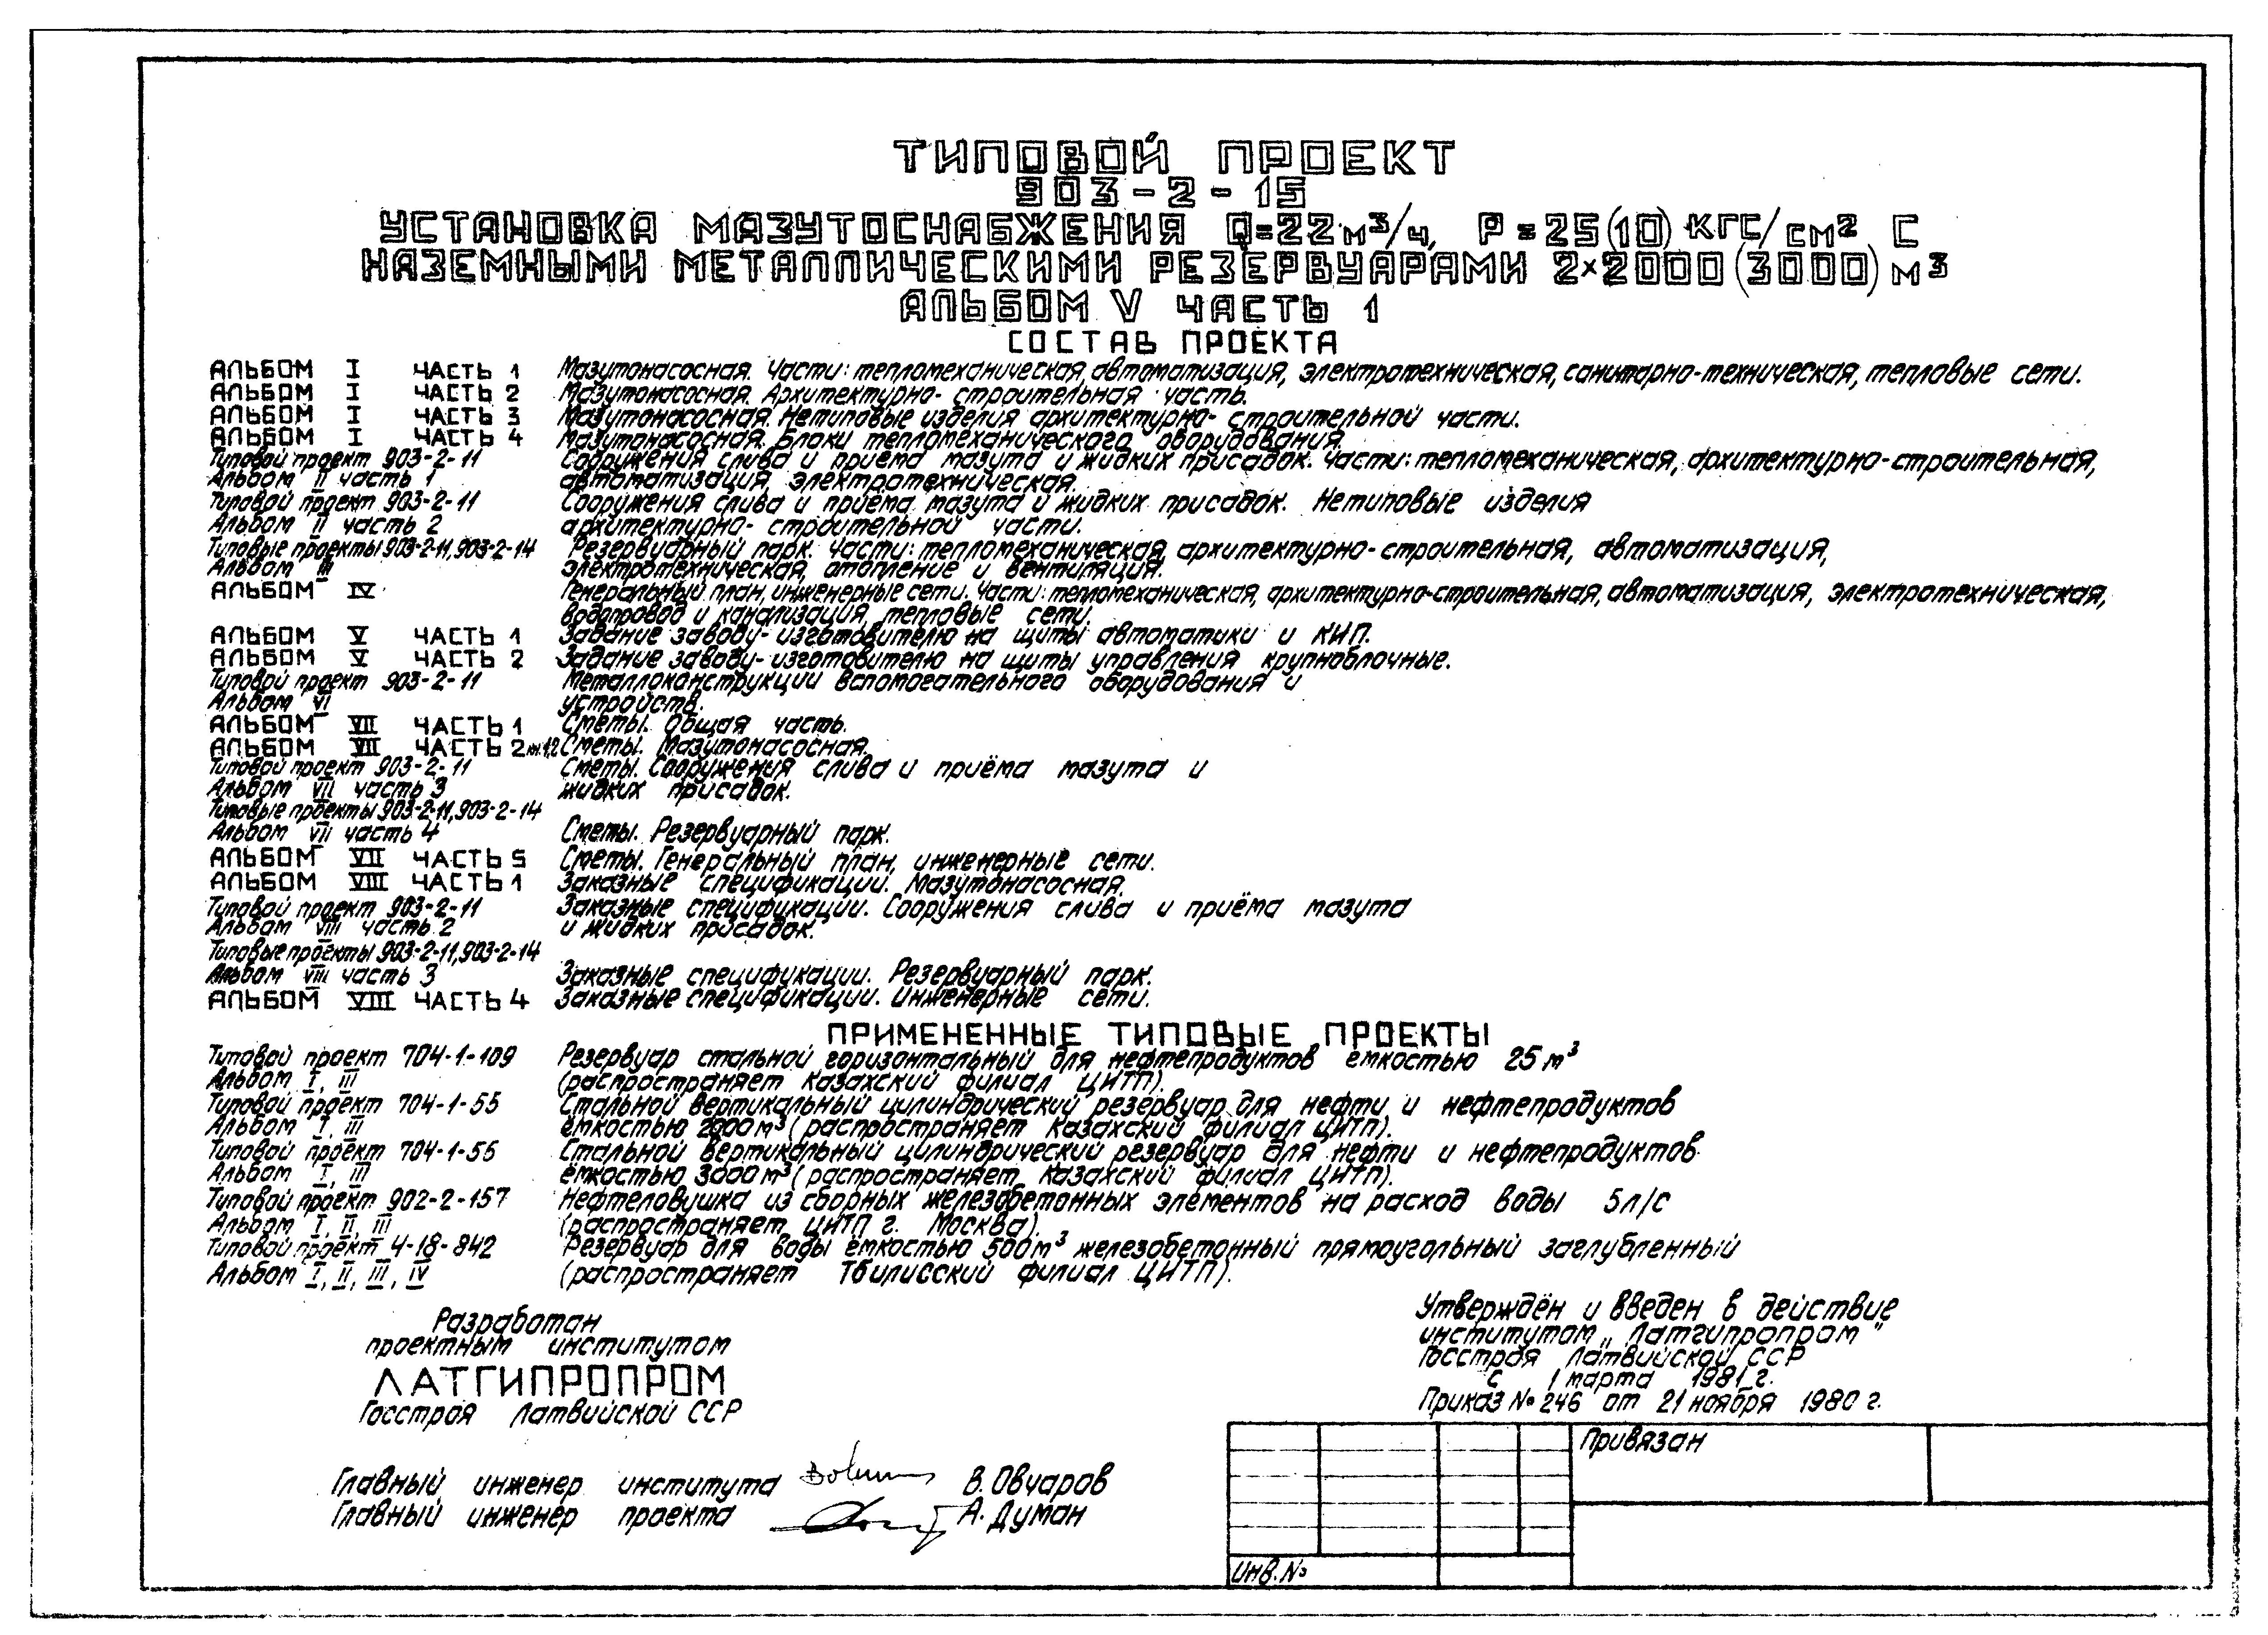 ТИПОВОЙ ПРОЕКТ
903-2-15
УСТАНОВКА МАЗУТОСНАБЖЕНИЯ Q=22м³/ч, Р=25(10)кгс/см² С
НАЗЕМНЫМИ МЕТАЛЛИЧЕСКИМИ РЕЗЕРВУАРАМИ 2×2000(3000)м³
АЛЬБОМ V ЧАСТЬ 1
СОСТАВ ПРОЕКТА
АЛЬБОМ I ЧАСТЬ 1 Мазутонасосная. Части: тепломеханическая, автоматизация, электротехническая, санитарно-техническая, тепловые сети.
АЛЬБОМ I ЧАСТЬ 2 Мазутонасосная. Архитектурно-строительная часть.
АЛЬБОМ I ЧАСТЬ 3 Мазутонасосная. Нетиповые изделия архитектурно-строительной части.
АЛЬБОМ I ЧАСТЬ 4 Мазутонасосная. Блоки тепломеханического оборудования.
Типовой проект 903-2-11 Сооружения слива и приёма мазута и жидких присадок. Части: тепломеханическая, архитектурно-строительная,
Альбом II часть 1 автоматизация, электротехническая.
Типовой проект 903-2-11 Сооружения слива и приёма мазута и жидких присадок. Нетиповые изделия
Альбом II часть 2 архитектурно-строительной части.
Типовые проекты 903-2-11, 903-2-14 Резервуарный парк. Части: тепломеханическая, архитектурно-строительная, автоматизация,
Альбом III электротехническая, отопление и вентиляция.
АЛЬБОМ IV Генеральный план, инженерные сети. Части: тепломеханическая, архитектурно-строительная, автоматизация, электротехническая,
водопровод и канализация, тепловые сети.
АЛЬБОМ V ЧАСТЬ 1 Задание заводу-изготовителю на щиты автоматики и КИП.
АЛЬБОМ V ЧАСТЬ 2 Задание заводу-изготовителю на щиты управления крупноблочные.
Типовой проект 903-2-11 Металлоконструкции вспомогательного оборудования и
Альбом VI устройств.
АЛЬБОМ VII ЧАСТЬ 1 Сметы. Общая часть.
АЛЬБОМ VII ЧАСТЬ 2 кн.1,2 Сметы. Мазутонасосная.
Типовой проект 903-2-11 Сметы. Сооружения слива и приёма мазута и
Альбом VII часть 3 жидких присадок.
Типовые проекты 903-2-11, 903-2-14
Альбом VII часть 4 Сметы. Резервуарный парк.
АЛЬБОМ VII ЧАСТЬ 5 Сметы. Генеральный план, инженерные сети.
АЛЬБОМ VIII ЧАСТЬ 1 Заказные спецификации. Мазутонасосная.
Типовой проект 903-2-11 Заказные спецификации. Сооружения слива и приёма мазута
Альбом VIII часть 2 и жидких присадок.
Типовые проекты 903-2-11, 903-2-14
Альбом VIII часть 3 Заказные спецификации. Резервуарный парк.
АЛЬБОМ VIII ЧАСТЬ 4 Заказные спецификации. Инженерные сети.
ПРИМЕНЕННЫЕ ТИПОВЫЕ ПРОЕКТЫ
Типовой проект 704-1-109 Резервуар стальной горизонтальный для нефтепродуктов емкостью 25м³
Альбом I, III (распространяет Казахский филиал ЦИТП).
Типовой проект 704-1-55 Стальной вертикальный цилиндрический резервуар для нефти и нефтепродуктов
Альбом I, III ёмкостью 2000м³ (распространяет Казахский филиал ЦИТП).
Типовой проект 704-1-56 Стальной вертикальный цилиндрический резервуар для нефти и нефтепродуктов
Альбом I, III ёмкостью 3000м³ (распространяет Казахский филиал ЦИТП).
Типовой проект 902-2-157 Нефтеловушка из сборных железобетонных элементов на расход воды 5л/с
Альбом I, II, III (распространяет ЦИТП г. Москва).
Типовой проект 4-18-842 Резервуар для воды ёмкостью 500м³ железобетонный прямоугольный заглубленный
Альбом I, II, III, IV (распространяет Тбилисский филиал ЦИТП).
Разработан
проектным институтом
ЛАТГИПРОПРОМ
Госстроя Латвийской ССР
Утверждён и введен в действие
институтом „Латгипропром"
Госстроя Латвийской ССР
с 1 марта 1981г.
Приказ № 246 от 21 ноября 1980г.
Главный инженер института В. Овчаров
Главный инженер проекта А. Думан
Привязан
Инв. №